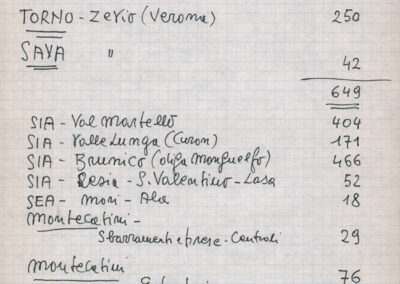 TORNO - Zevio (Verona) 250
SAVA " 42
649
SIA - Val Martello 404
SIA - Valle Lunga (Curon) 171
SIA - Brunico (diga Monguelfo) 466
SIA - Resia - S. Valentino - Lasa 52
SEA - Mori - Ala 18
Montecatini -
Sbarramenti e prese - Centrali 29
Montecatini 76